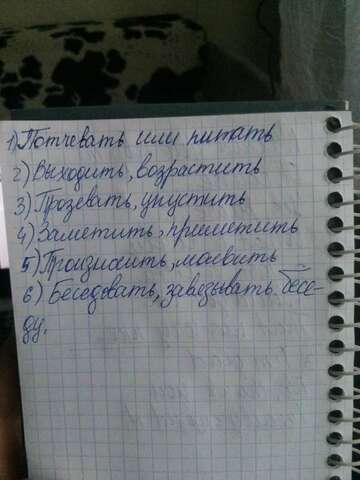 1) Потчевать или питать
2) Выходить, возрастить
3) Прозевать, упустить
4) Заметить, приметить
5) Произносить, молвить
6) Беседовать, завязывать бесе-
ду.